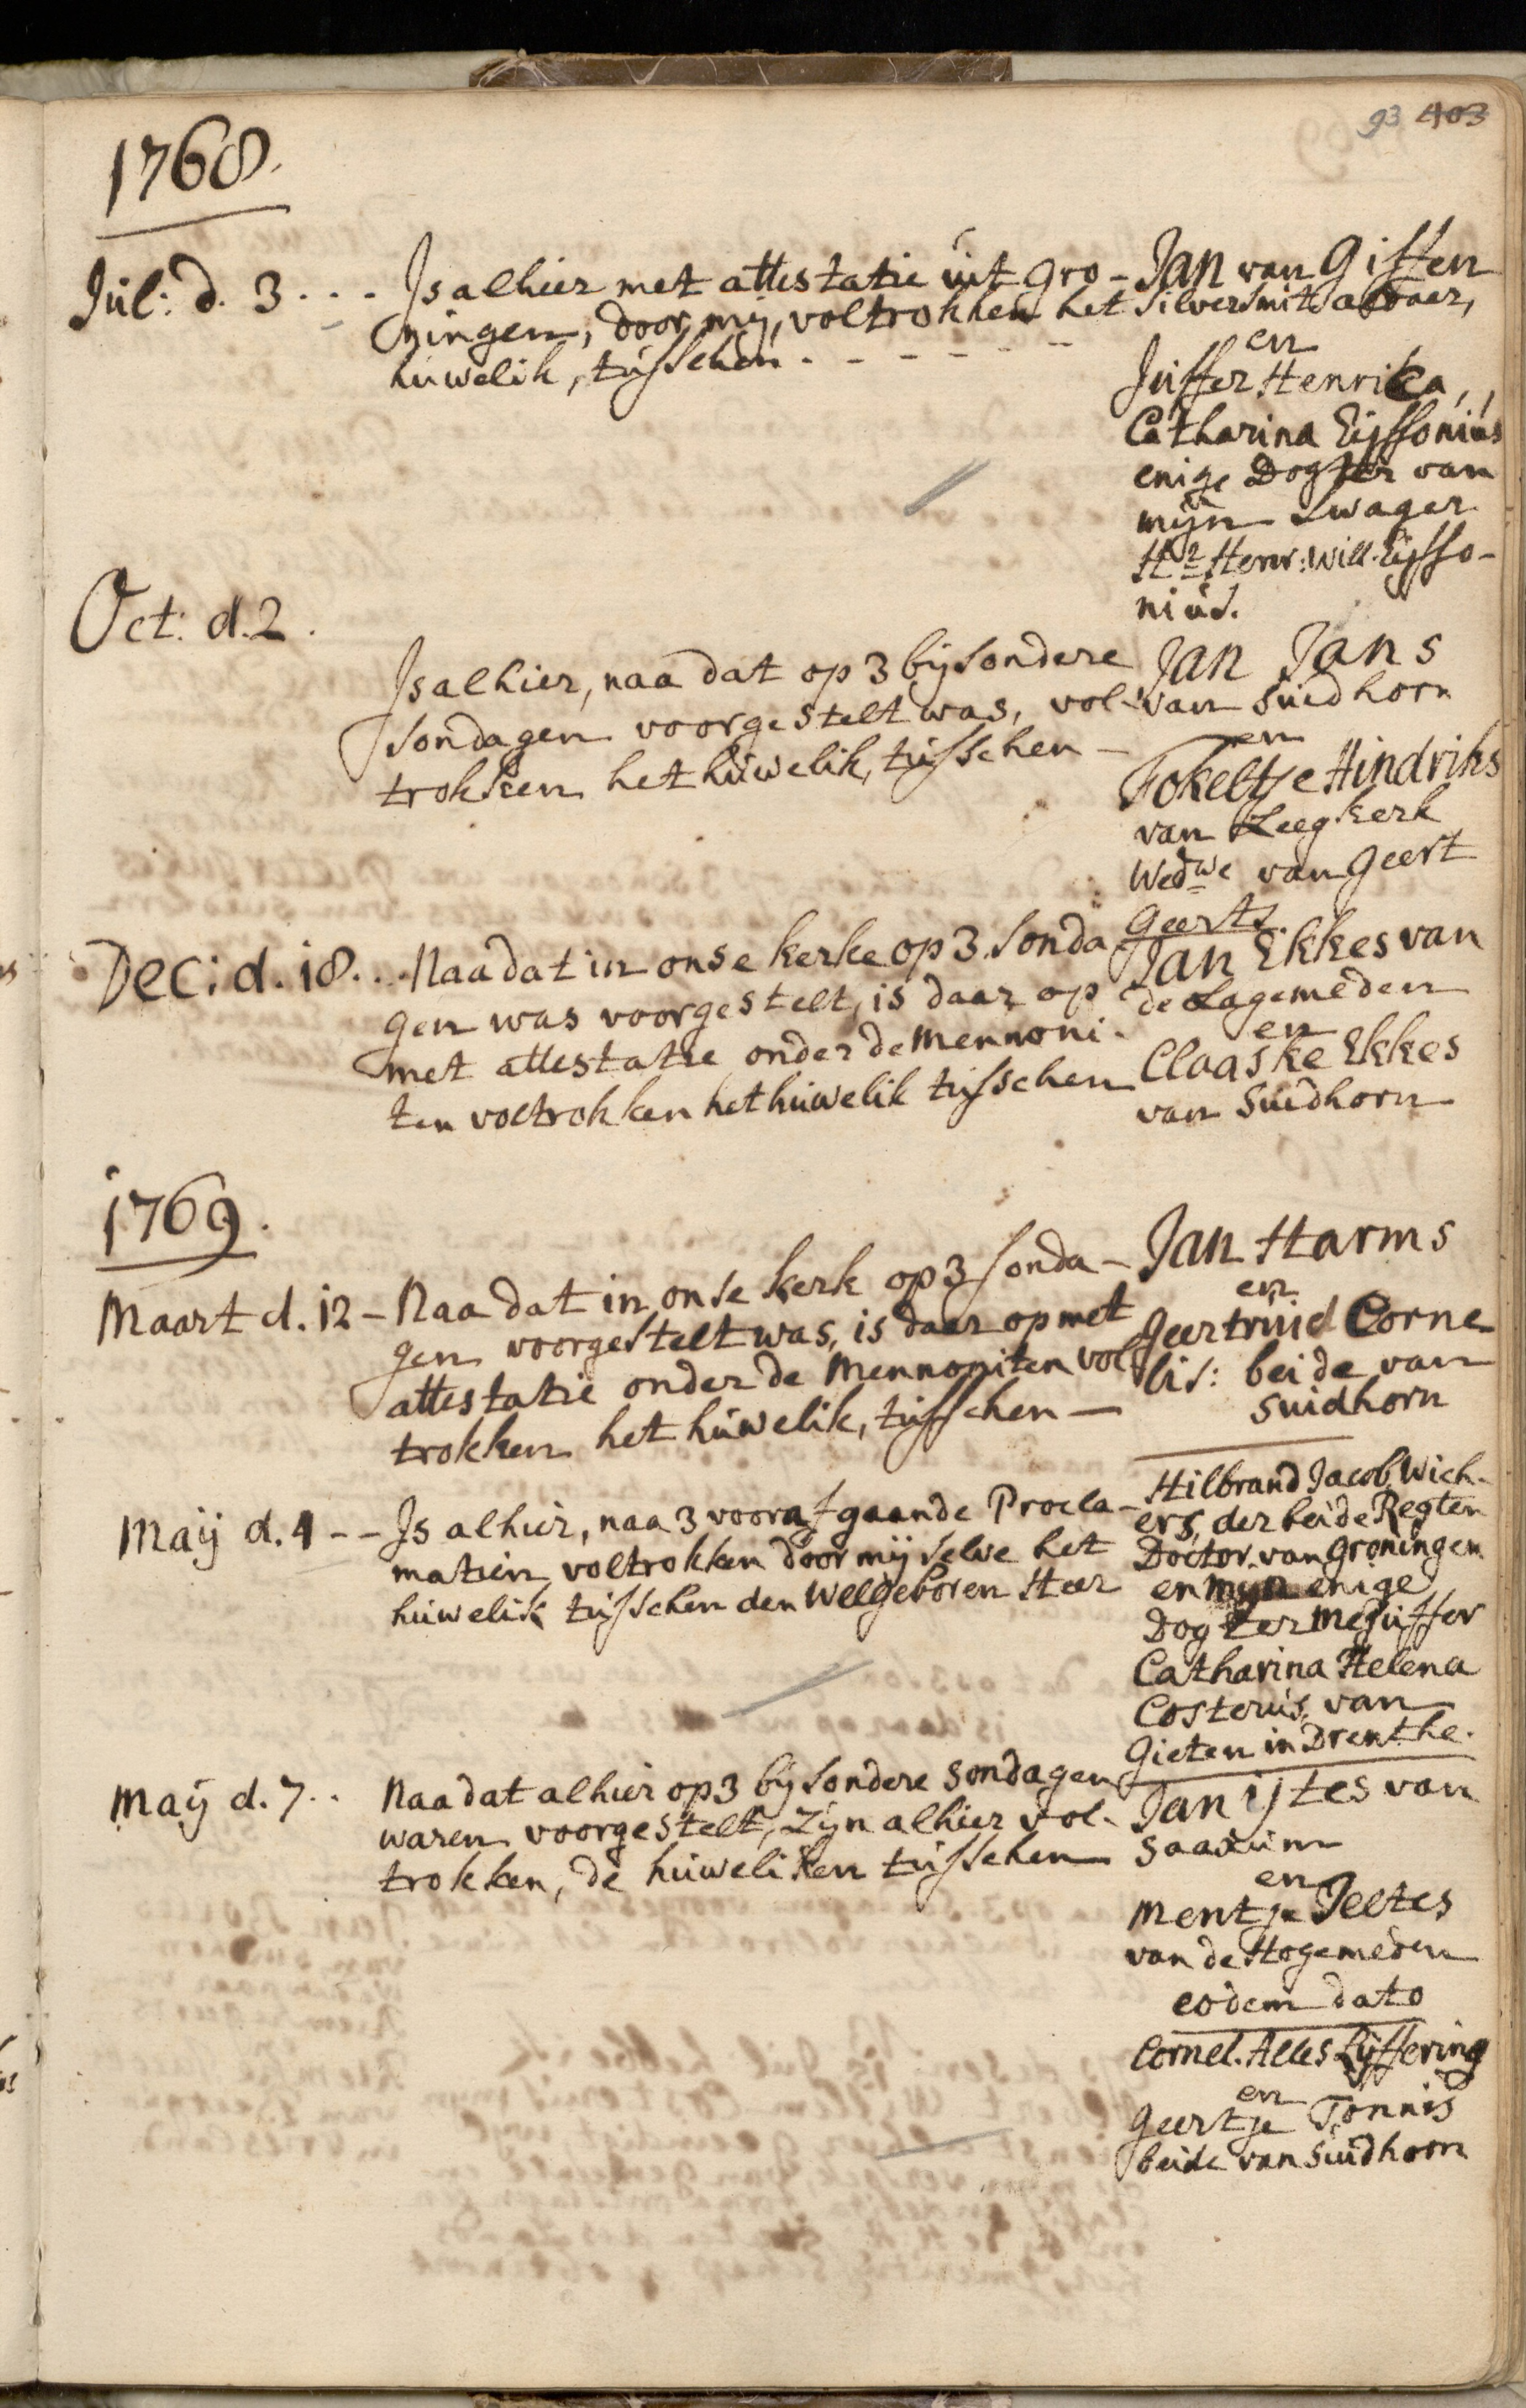 93 403
1768.
Jul: d. 3 . . . Is alhier met attestatie uit Gro-
ningen, door mij, voltrokken het
huwelik, tusschen - - - - - -
Jan van Giffen
Silversmit aldaer,
en
Juffer Henrika,
Catharina Eijssonius
enige Dogter van
mijn Swager
Hr Henr: Will. Eijsso-
nius.
Oct: d. 2.
Is alhier, naa dat op 3 bijsondere
Sondagen voorgestelt was, vol-
trokken het huwelik, tusschen -
Jan Jans
van Suidhorn
en
Fokeltje Hindriks
van Leegkerk
Wedwe van Geert
Geerts.
Dec: d. 18. . . Naa dat in onse kerke op 3 Sonda
gen was voorgestelt, is daar op
met attestatie onder de Mennoni-
ten voltrokken het huwelik tusschen
Jan Ekkes van
de Lagemeden
en
Claaske Ekkes
van Suidhorn
1769.
Maart d. 12 - Naa dat in onse kerk op 3 Sonda-
gen voorgestelt was, is daar op met
attestatie onder de Mennoniten vol
trokken het huwelik, tusschen -
Jan Harms
en
Geertruid Corne
lis: beide van
Suidhorn
Maij d. 4 - - Is alhier, naa 3 voorafgaande Procla-
matien voltrokken door mij selve het
huwelik tusschen den Welgeboren Heer
Hilbrand Jacob Wich-
ers, der beide Regten
Doctor van Groningen
en mijn enige
Dogter Mejuffer
Catharina Helena
Costerus, van
Gieten in Drenthe.
Maij d. 7 . . Naa dat alhier op 3 bijsondere Sondagen
waren voorgestelt, Zijn alhier vol-
trokken, de huweliken tusschen
Jan ijtes van
Saaxum
en
Mentje Jeltes
van de Hogemeden
eodem dato
Cornel. Alles Zijffering
en
Geertje Tonnis
beide van Suidhorn